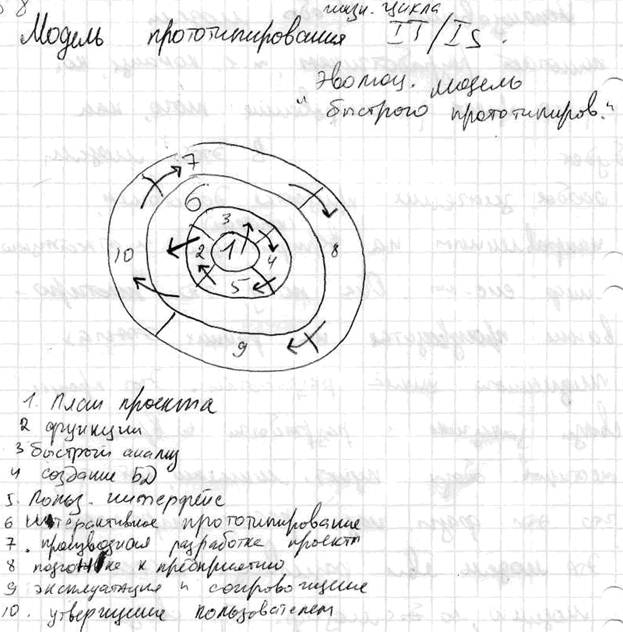 8
жизн. цикла
Модель прототипирования IT/IS.
Эволюц. модель
"быстрого прототипиров."
7
6
3
10
2
1
4
8
5
9
1. План проекта
2 функции
3 быстрый анализ
4 создание БД
5. Польз. интерфейс
6 интерактивное прототипирование
7. производная разработка проекта
8 к предприятию
9 эксплуатация и сопровождение
10. утверждение пользователем